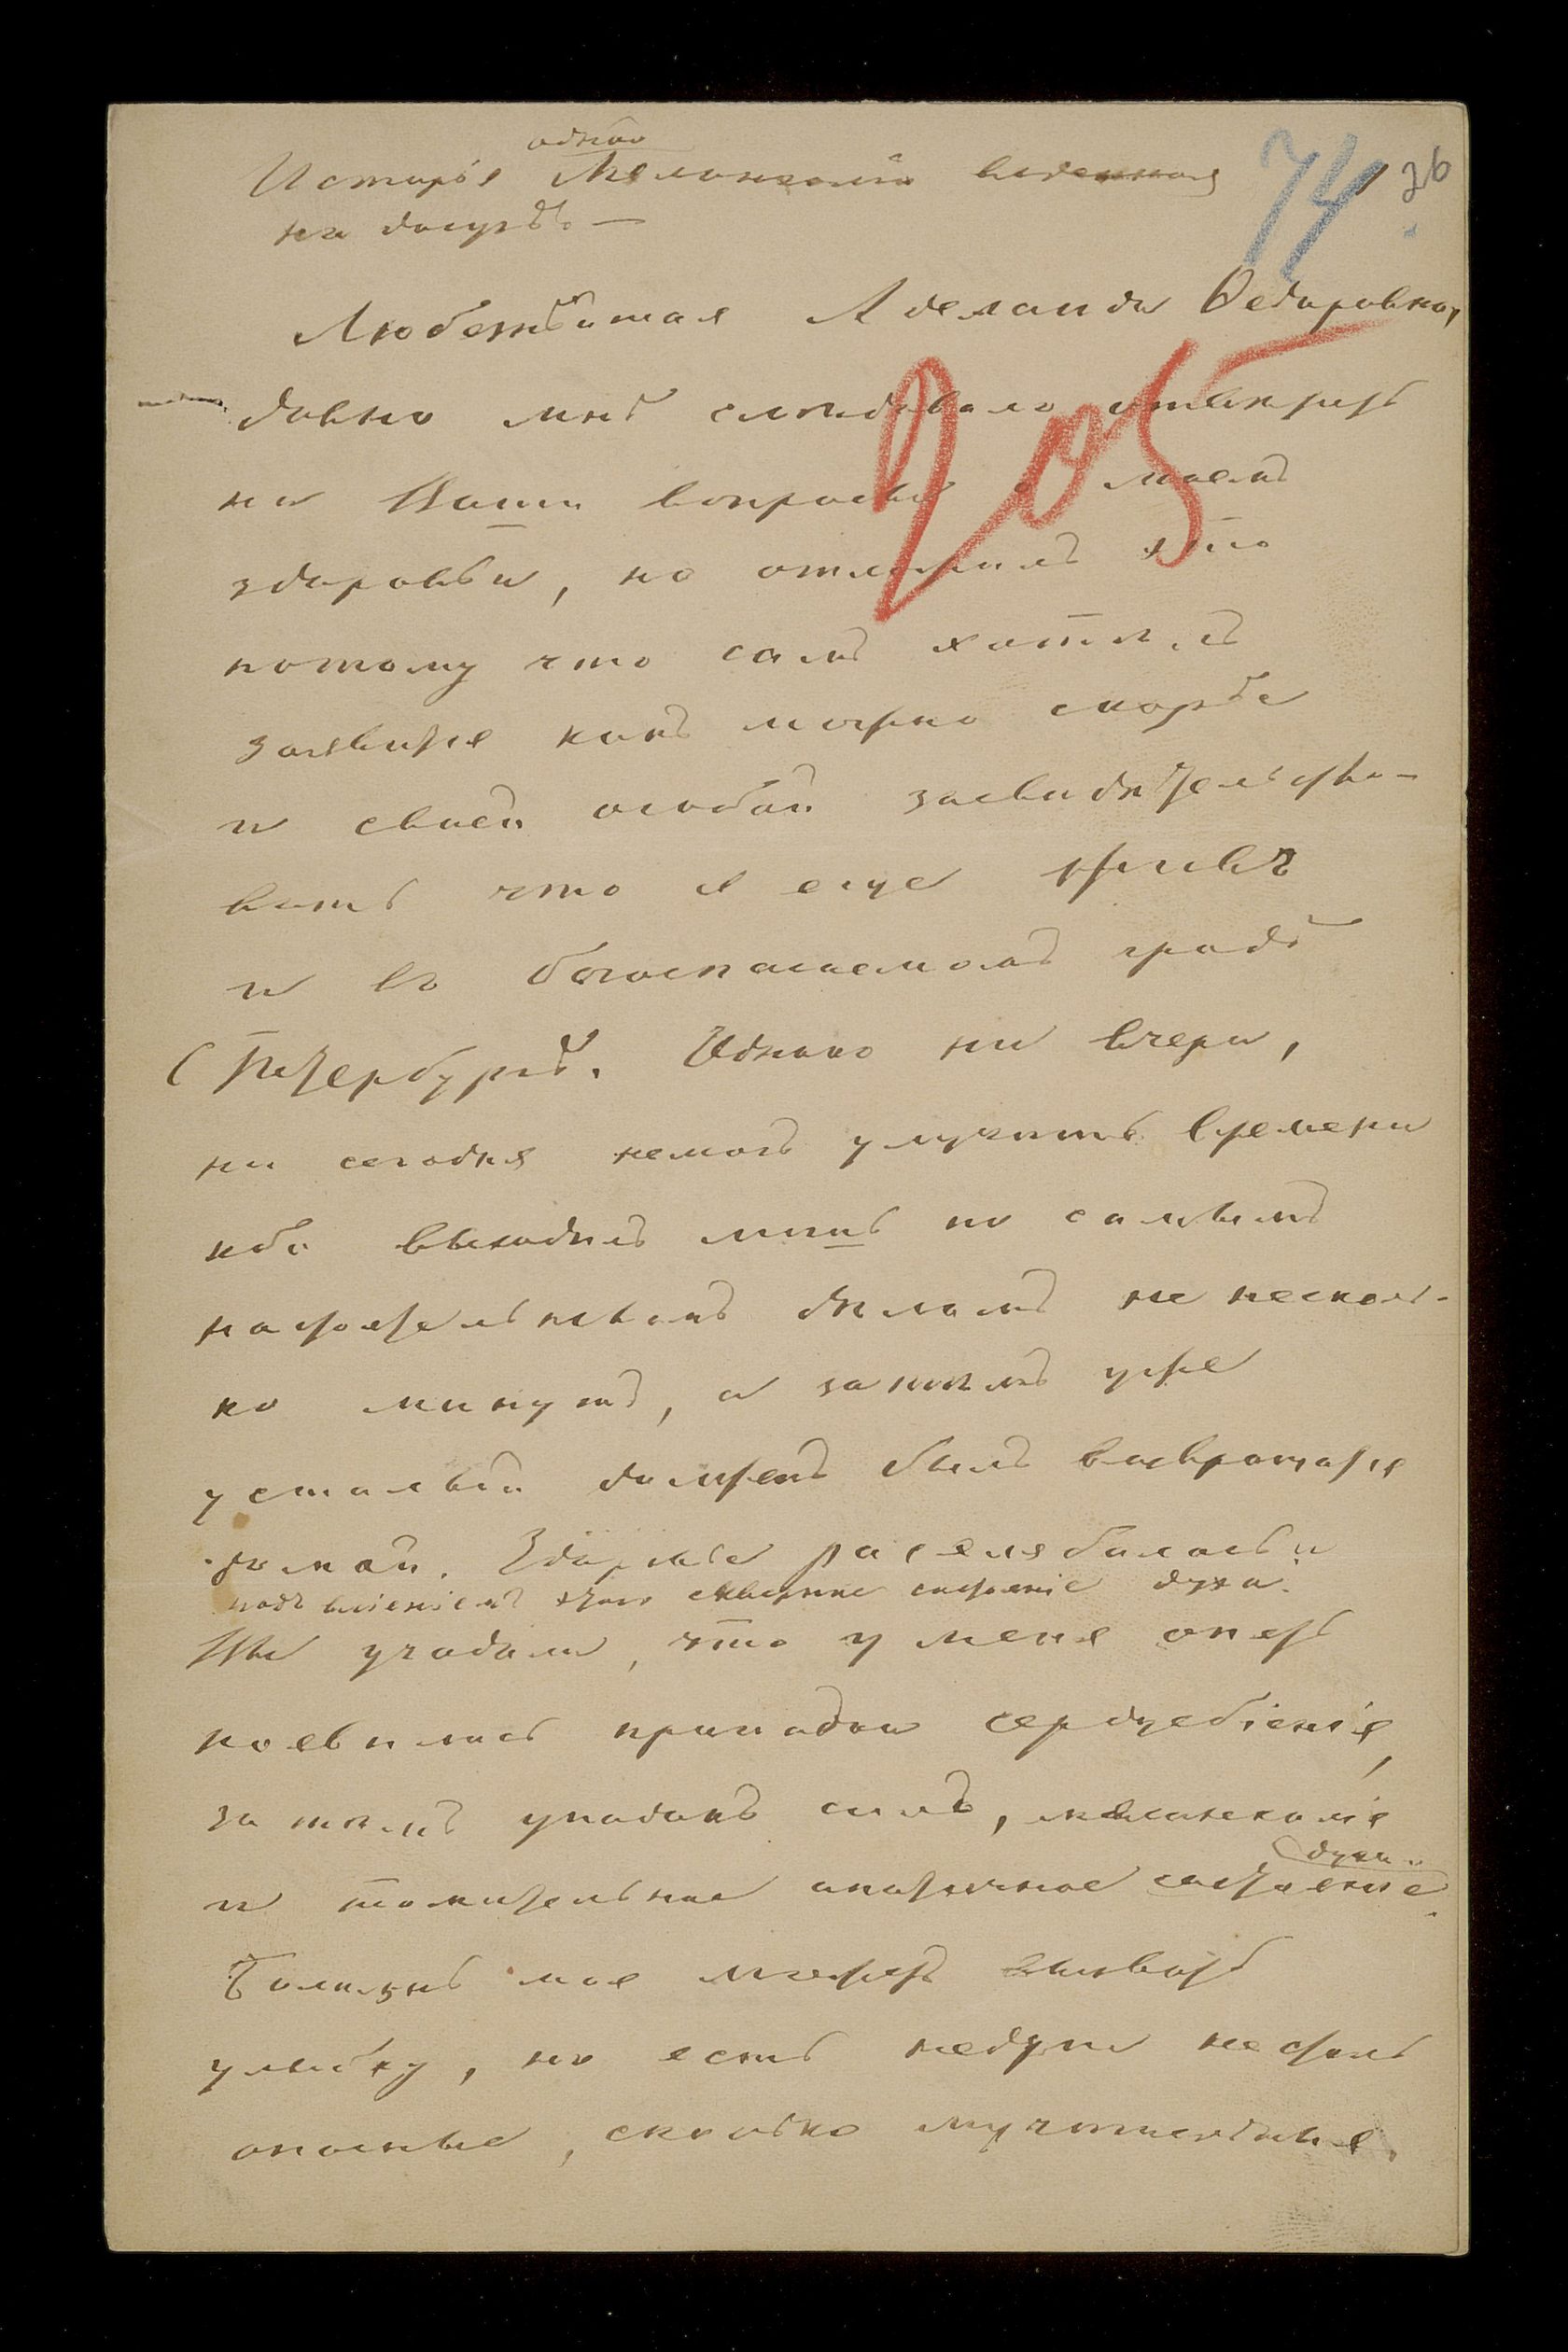 одной
Исторія Меланхоліи
на досугѣ —
74
26
Аделаида Ѳедоровна,
205
давно мнѣ слѣдовало отвѣтить
на Ваши вопросы о моемъ
здоровьи, но отложилъ это
потому что самъ хотѣлъ
заявится какъ можно скорѣе
и своей особой засвидѣтельство-
вать что я еще живъ
и въ богоспасаемомъ градѣ
С Петербургѣ. Однако ни вчера,
ни сегодня немогъ улучить времени
ибо выходилъ лишь по самымъ
настоятельнымъ дѣламъ на несколь-
ко минутъ, а затѣмъ уже
усталый долженъ былъ возвращатся
домой. Здоровье и
подъ вліяніемъ этого скверное состояніе духа.
Вы угадали, что у меня опять
появились припадки сердцебіенія,
затѣмъ упадокъ силъ, меланхолія
и томительное апатичное состояніе
духа.
Болѣзнь моя можетъ вызвать
улыбку, но есть недуги не столь
опасные, сколько мучительные.